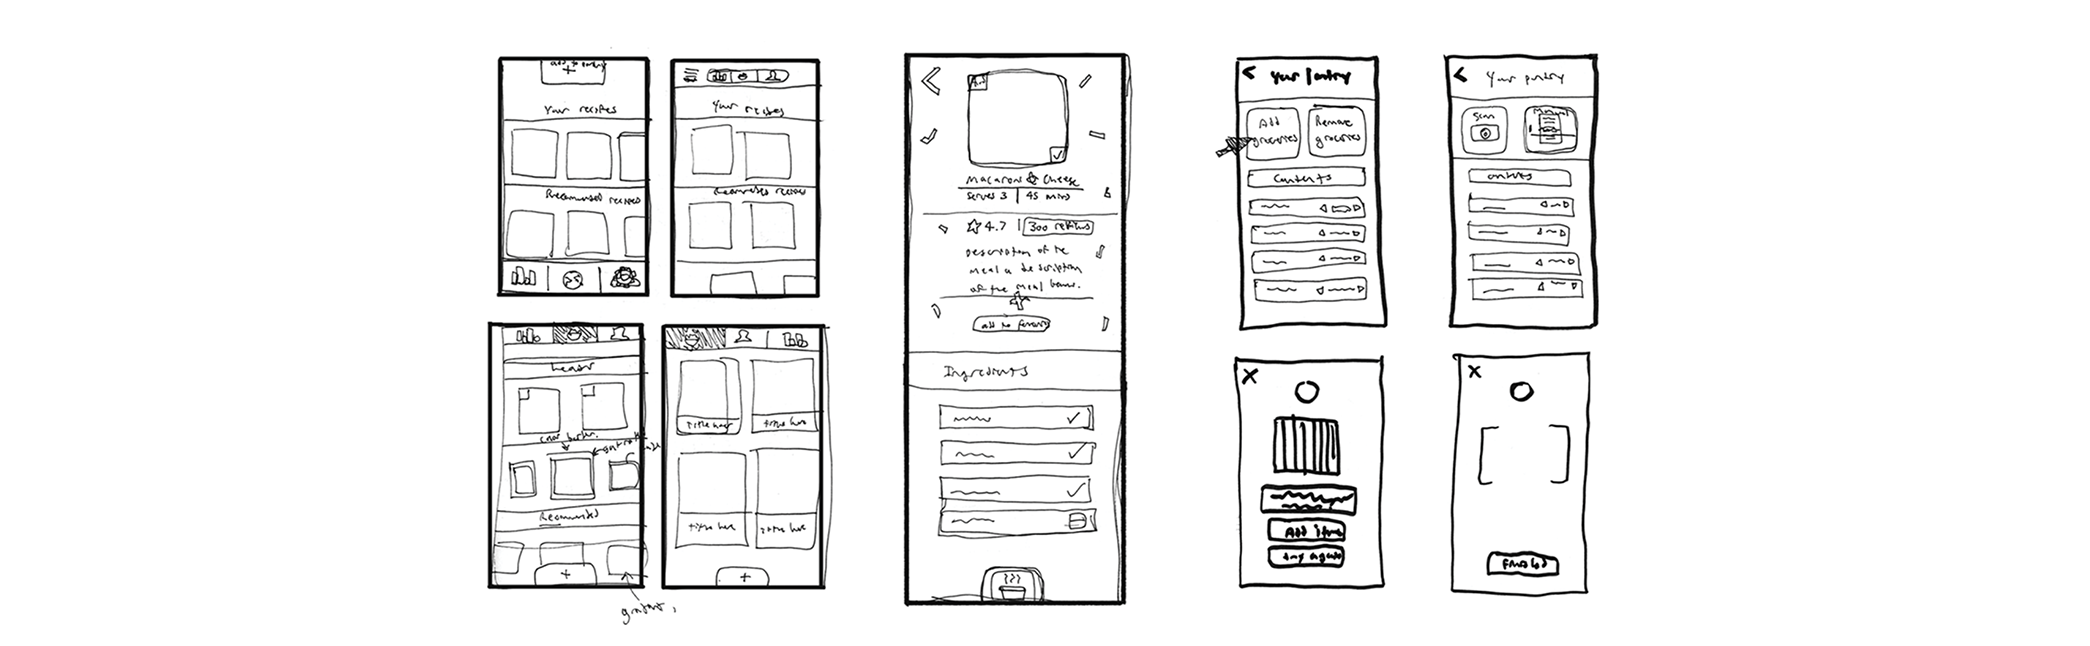 add to pantry
+
Your recipes
Recommended recipes
Your recipes
Recommended recipes
Recommended
+
title here
title here
title here
title here
+
Macaroni & Cheese
Serves 3 | 45 mins
4.7 | 300 reviews
Description of the
meal a description
of the meal
add to favourites
Ingredients
Your pantry
Add
groceries
Remove
groceries
Contents
Your pantry
Scan
Manual
Contents
X
Add items
try again
X
Finished